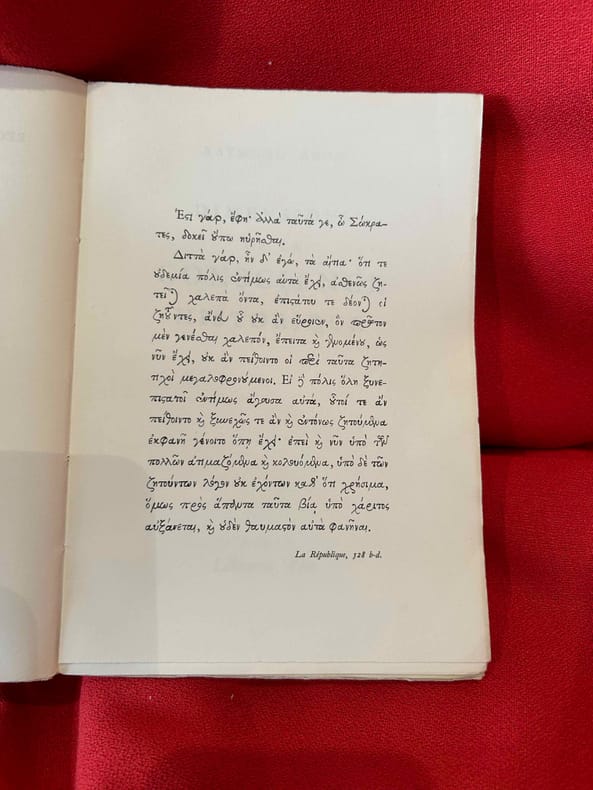 Ἔστι γάρ, ἔφη· ἀλλὰ ταῦτά γε, ὦ Σώκρα-
τες, δοκεῖ οὔπω ηὑρῆσθαι.
Διττὰ γάρ, ἦν δ' ἐγώ, τὰ αἴτια· ὅτι τε
οὐδεμία πόλις ἐντίμως αὐτὰ ἔχει, ἀσθενῶς ζη-
τεῖται χαλεπὰ ὄντα, ἐπιστάτου τε δέονται οἱ
ζητοῦντες, ἄνευ οὗ οὐκ ἂν εὕροιεν, ὃν πρῶτον
μὲν γενέσθαι χαλεπόν, ἔπειτα καὶ γενομένου, ὡς
νῦν ἔχει, οὐκ ἂν πείθοιντο οἱ περὶ ταῦτα ζητη-
τικοὶ μεγαλοφρονούμενοι. Εἰ δὲ πόλις ὅλη ξυνε-
πιστατοῖ ἐντίμως ἄγουσα αὐτά, οὗτοί τε ἂν
πείθοιντο καὶ ξυνεχῶς τε ἂν καὶ ἐντόνως ζητούμενα
ἐκφανῆ γένοιτο ὅπη ἔχει· ἐπεὶ καὶ νῦν ὑπὸ τῶν
πολλῶν ἀτιμαζόμενα καὶ κολουόμενα, ὑπὸ δὲ τῶν
ζητούντων λόγον οὐκ ἐχόντων καθ' ὅτι χρήσιμα,
ὅμως πρὸς ἅπαντα ταῦτα βίᾳ ὑπὸ χάριτος
αὐξάνεται, καὶ οὐδὲν θαυμαστὸν αὐτὰ φανῆναι.
La République, 528 b-d.